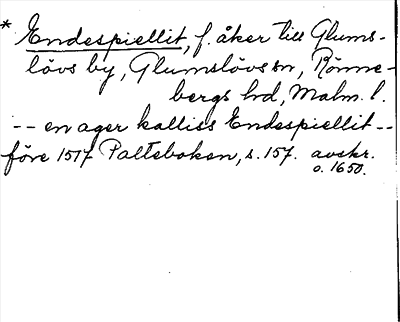 * Endespiellit, f. åker till Glums-
lövs by, Glumslövs sn, Rönne-
bergs hd, Malm. l.
-- en ager kalliss Endespiellit --
före 1517 Palteboken, s. 157. avskr.
o. 1650.